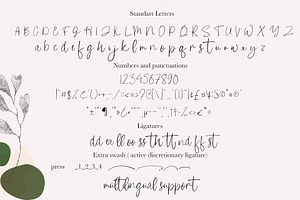 Standart Letters
ABCDEFGHIJKLMNOPQRSTUVWXYZ
abcdefghijklmnopqrstuvwxyz
Numbers and punctuations
1234567890
Ligatures
dd er ll oo ss th tt nd ff st
Extra swash ( active discretionary ligature)
press _1_2_3_4
multilingual support